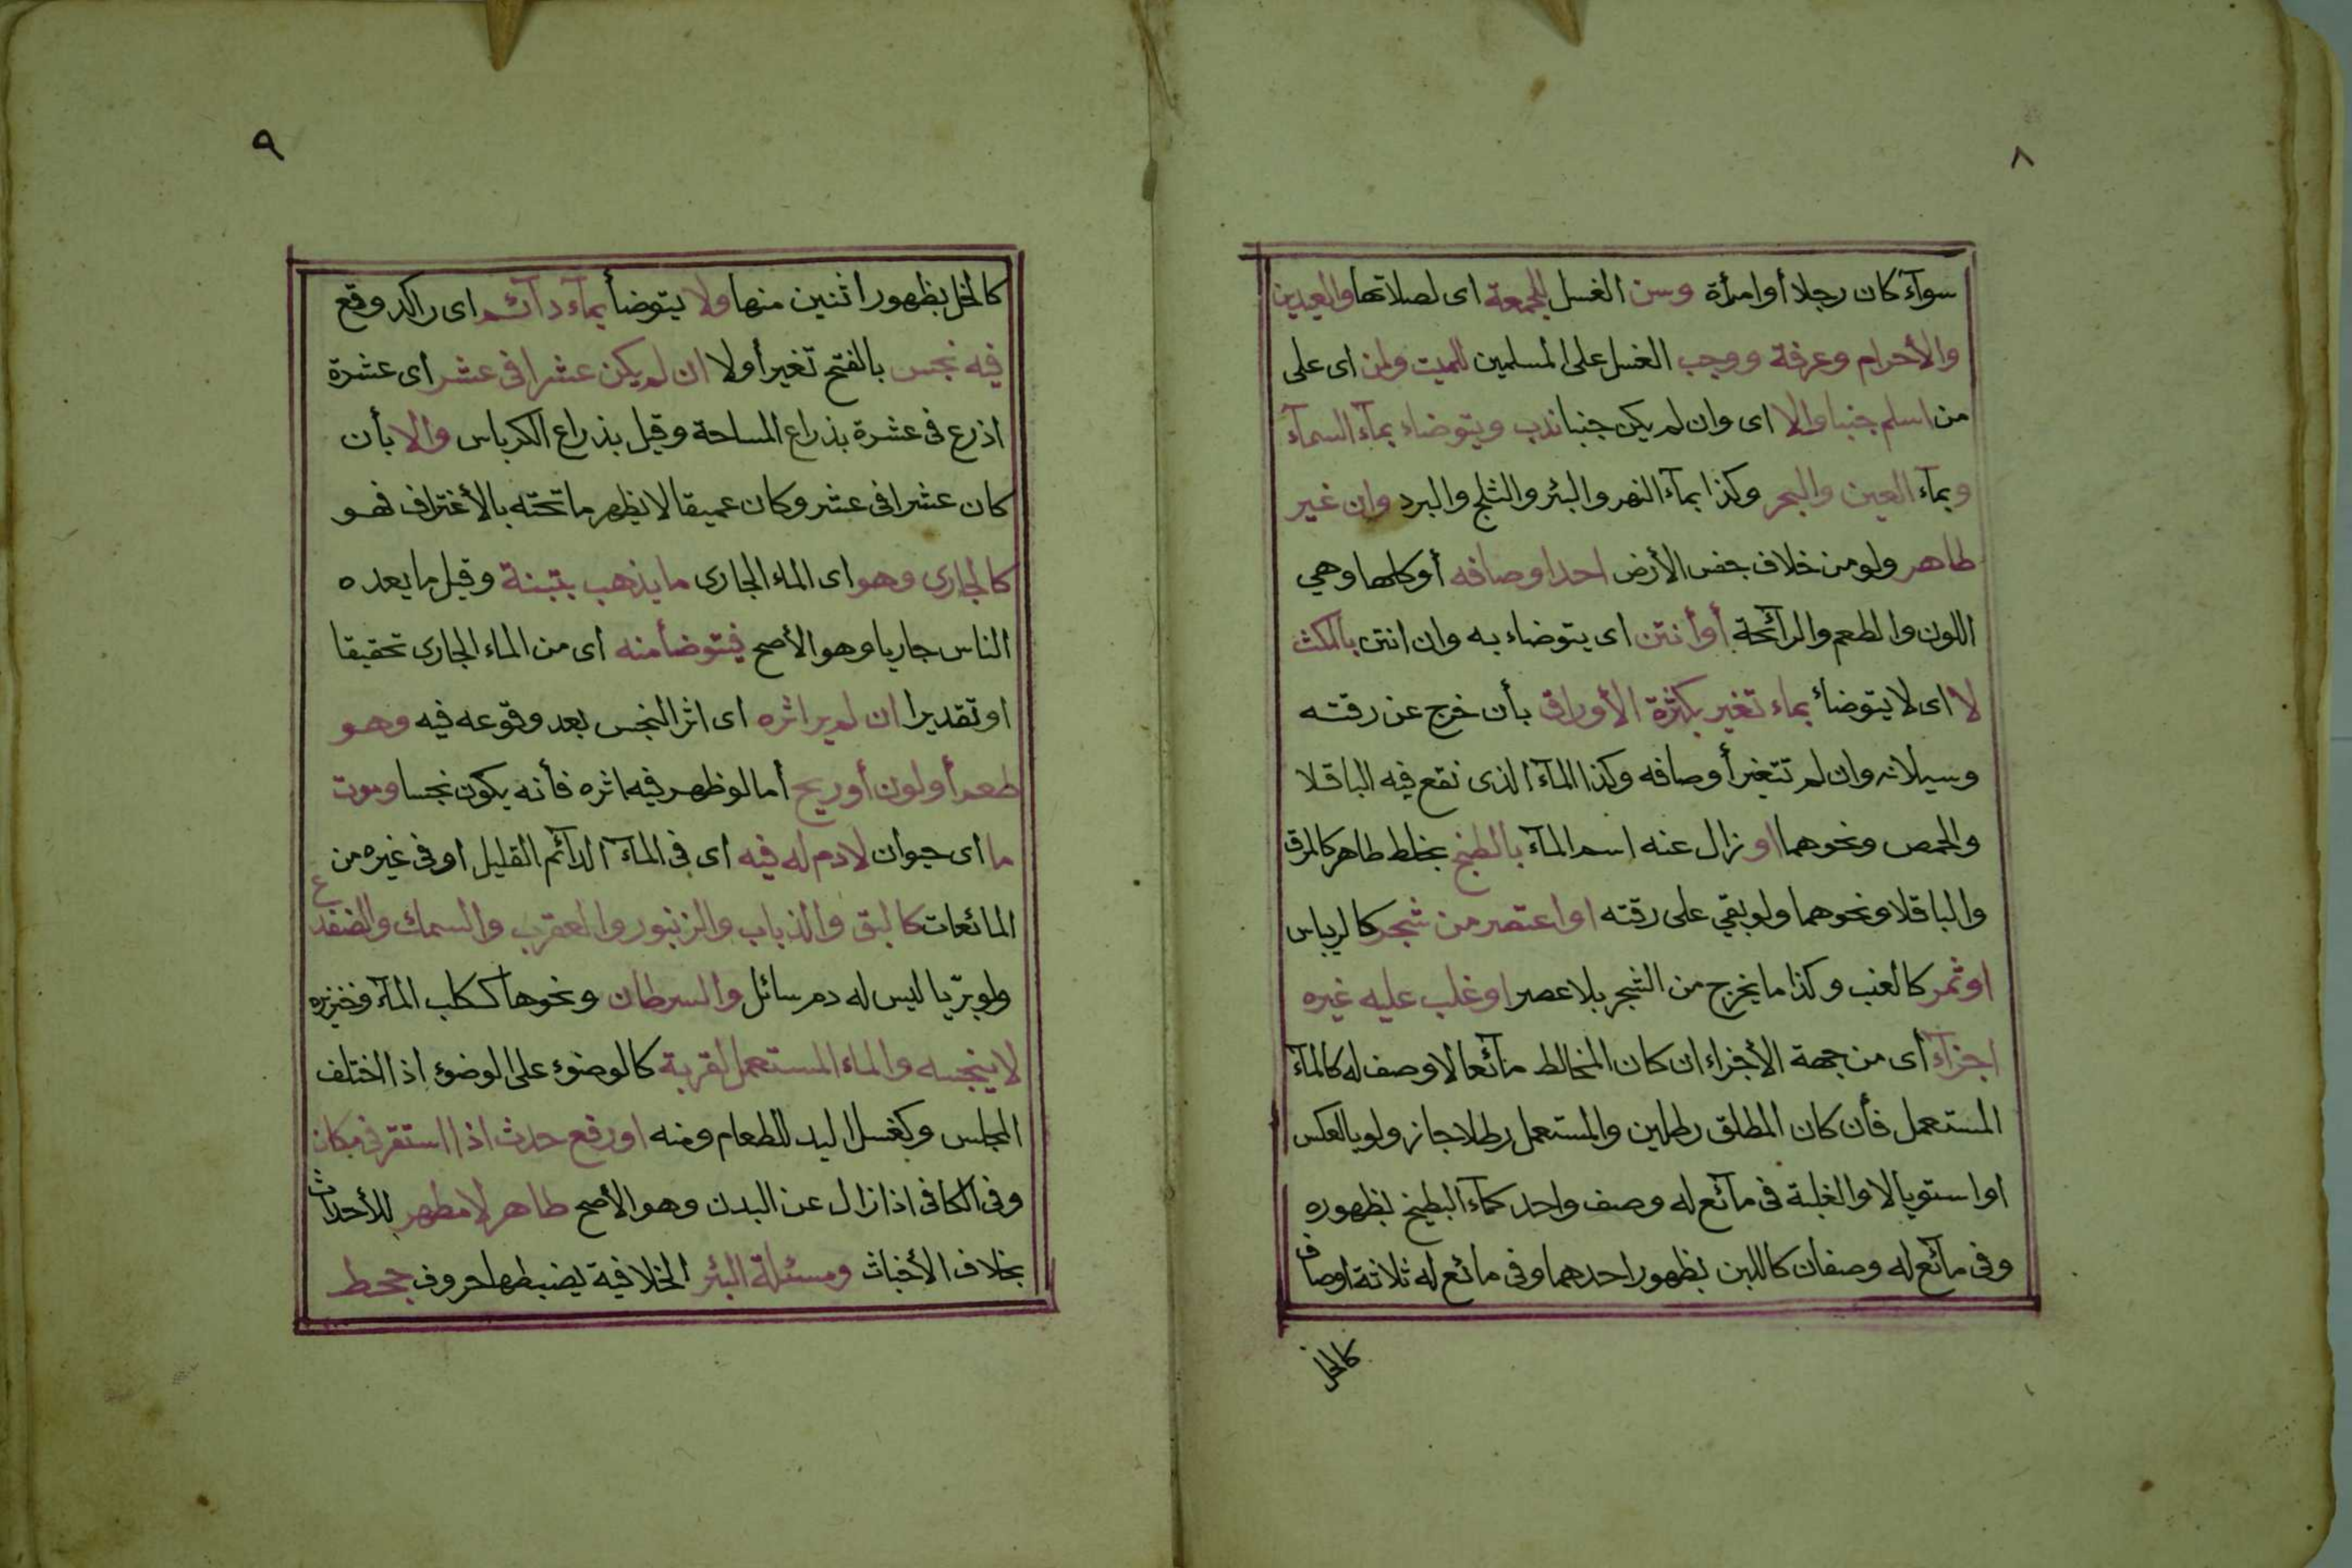 ٨
سوآء كان رجلا أوامرأة وسن الغسل للجمعة اى لصلاتها والعيدين
والأحرام وعرفة ووجب الغسل على المسلمين للميت ولمن اى على
من اسلم جنبا والا اى وان لم يكن جنبا ندب ويتوضاء بمآء السمآء
وبمآء العين والبحر وكذا بمآء النهر والبئر والثلج والبرد وان غير
طاهر ولو من خلاف جنس الأرض احد اوصافه أو كلها وهي
اللون والطعم والرآئحة أو أنتن اى يتوضاء به وان انتن بالمكث
لا اى لا يتوضأ بماء تغير بكثرة الأوراق بأن خرج عن رقته
وسيلانه وان لم تتغير أوصافه وكذا المآء الذى نقع فيه الباقلا
والحمص ونحوهما او زال عنه اسم المآء بالطبخ بخلط طاهر كالمرق
والباقلا ونحوهما ولو بقي على رقته او اعتصر من شجر كالريباس
او ثمر كالعنب وكذا ما يخرج من الشجر بلا عصر او غلب عليه غيره
اجزآء أى من جهة الأجزاء ان كان المخالط مآئعا لا وصف له كالمآء
المستعمل فأن كان المطلق رطلين والمستعمل رطلا جاز ولو بالعكس
او استويا لا والغلبة فى مآئع له وصف واحد كمآء البطيخ بظهوره
وفى مآئع له وصفان كاللبن بظهور احدهما وفى مائع له ثلاثة اوصاف
كالخل
٩
كالخل بظهور اثنين منها ولا يتوضأ بمآء دآئم اى راكد وقع
فيه نجس بالفتح تغير أولا ان لم يكن عشرا فى عشر اى عشرة
اذرع فى عشرة بذراع المساحة وقيل بذراع الكرباس والا بأن
كان عشرا فى عشر وكان عميقا لا يظهر ما تحته بالأغتراف فهو
كالجارى وهو اى الماء الجارى ما يذهب بتبنة وقيل ما يعده
الناس جاريا وهو الأصح فيتوضأ منه اى من الماء الجارى تحقيقا
او تقديرا ان لم ير اثره اى اثر النجس بعد وقوعه فيه وهو
طعم أو لون أو ريح أما لو ظهر فيه اثره فأنه يكون نجسا وموت
ما اى حيوان لا دم له فيه اى فى المآء الدآئم القليل او فى غيره من
المائعات كالبق والذباب والزنبور والعقرب والسمك والضفدع
ولو بريّا ليس له دم سائل والسرطان ونحوها ككلب المآء وخنزيره
لا ينجسه والماء المستعمل لقربة كالوضوء على الوضوء اذا اختلف
المجلس وكغسل اليد للطعام ومنه او رفع حدث اذا استقر فى مكان
وفى الكافى اذا زال عن البدن وهو الأصح طاهر لا مطهر للأحداث
بخلاف الأخباث ومسئلة البئر الخلافية يضبطها حروف جحط